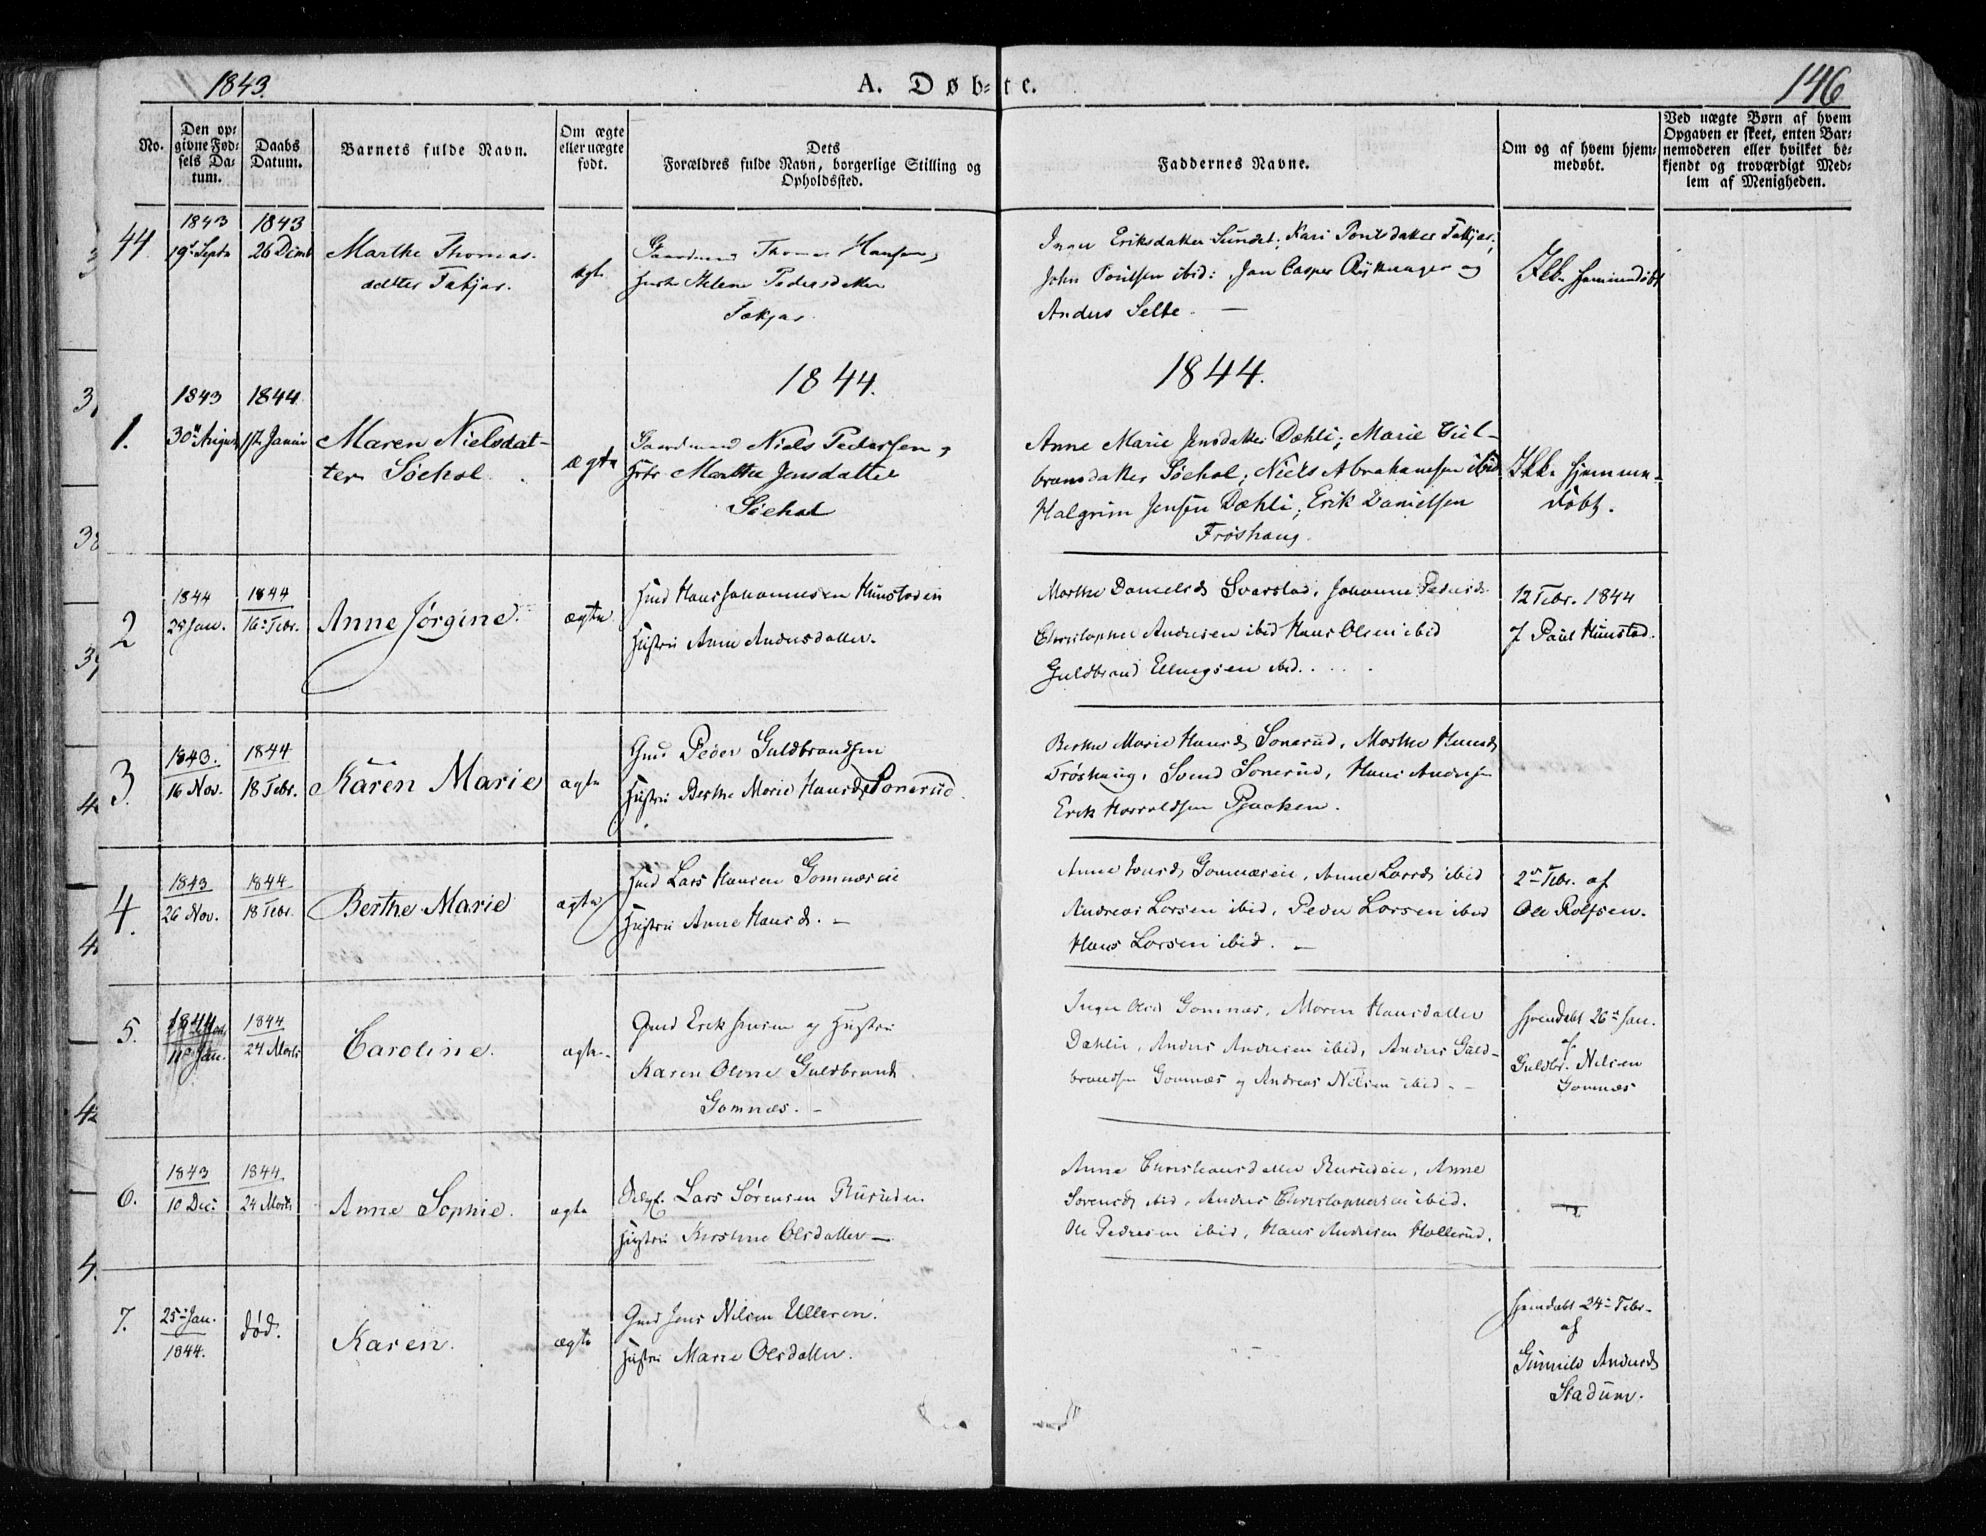 1843.
A. Døb-te.
146
No.
Den op-
givne Fød-
sels Da-
tum.
Daabs
Datum.
Barnets fulde Navn.
Om ægte
eller uægte
født.
Dets
Forældres fulde Navn, borgerlige Stilling og
Opholdssted.
Faddernes Navne.
Om og af hvem hjem-
medøbt.
Ved uægte Børn af hvem
Opgaven er skeet, enten Bar-
nemoderen eller hvilket be-
kjendt og troværdigt Med-
lem af Menigheden.
44.
1843
19d Septb
1843
26 Decmb
Marthe Thomas-
datter
ægte
Gaardmand Thomas Hansen,
Helene Pedersdatter
Eriksdatter Sundet; Kari
John Poulsen ibid: Jan Casper og
Anders Selte. —
Ikke hjemmedøbt
1844.
1844.
1.
1843
30te August
1844
1ste Januar
Maren Nielsdat-
ter Søehol.
ægte
Gaardmand Niels Pedersen,
Marthe Jensdatter
Søehol
Anne Marie Jensdatter Dæhli; Marie Gul-
bransdatter Søehol; Niels Abrahamsen ibid
Halgrim Jensen Dæhli; Erik Danielsen
Frøshaug.
Ikke hjemme-
døbt.
2
1844
25 Jan.
1844
16 Febr.
Anne Jørgine.
ægte
Hmd Hans Johannesen Hunstadeie
Hustru Anne Andersdatter.
Marthe Danielsd Svarstad, Johanne Pedersd
Christopher Andersen ibid Hans Olsen ibid
Guldbrand Ellingsen ibid.
12 Febr. 1844
f Paul Hunstad.
3.
1843.
16 Nov.
1844
18 Febr.
Karen Marie
ægte
Gmd Peder Guldbrandsen
Hustru Berthe Marie Hansd Sonerud.
Berthe Marie Hansd Sonerud, Marthe Hansd
Frøshaug, Svend Sonerud, Hans Andersen
Erik Harraldsen Pjaaken.
4.
1843
26 Nov.
1844
18 Febr.
Berthe Marie
ægte
Hmd Lars Hansen Gomnæseie
Hustru Anne Hansd. —
Anne Gomnæseie, Anne Larsd ibid
Andreas Larsen ibid, Peder Larsen ibid
Hans Larsen ibid. —
2den Febr. af
Ole Rolfsen.
5.
1844
Jan.
1844
24 Marts
Caroline.
ægte
Gmd Erik Jensen og Hustru
Karen Oline Guldbrands
Gomnæs. —
Inger Olsd Gomnæs, Maren Hansdatter
Dæhlie, Anders Andersen ibid, Anders Guld-
brandsen Gomnæs og Andreas Nilsen ibid. —
hjemdøbt 26de Jan.
af
Guldbr. Nilsen
Gomnæs
6.
1843
10 Dec:
1844.
24 Marts
Anne Sophie.
ægte
Lars Sørensen Rusuden
Hustru Kirstine Olsdatter —
Anne Christiansdatter Rusudeie, Anne
Sørensd ibid, Anders Christophersen ibid.
Ole Pedersen ibid, Hans Andersen Hollerud.
—
7.
25de Jan.
1844.
død.
Karen.
ægte
Gmd Jens Nilsen Ulleren.
Hustru Marie Olsdatter.
hjemdøbt 24de Febr.
af
Gunnild Andersd
Stadum.